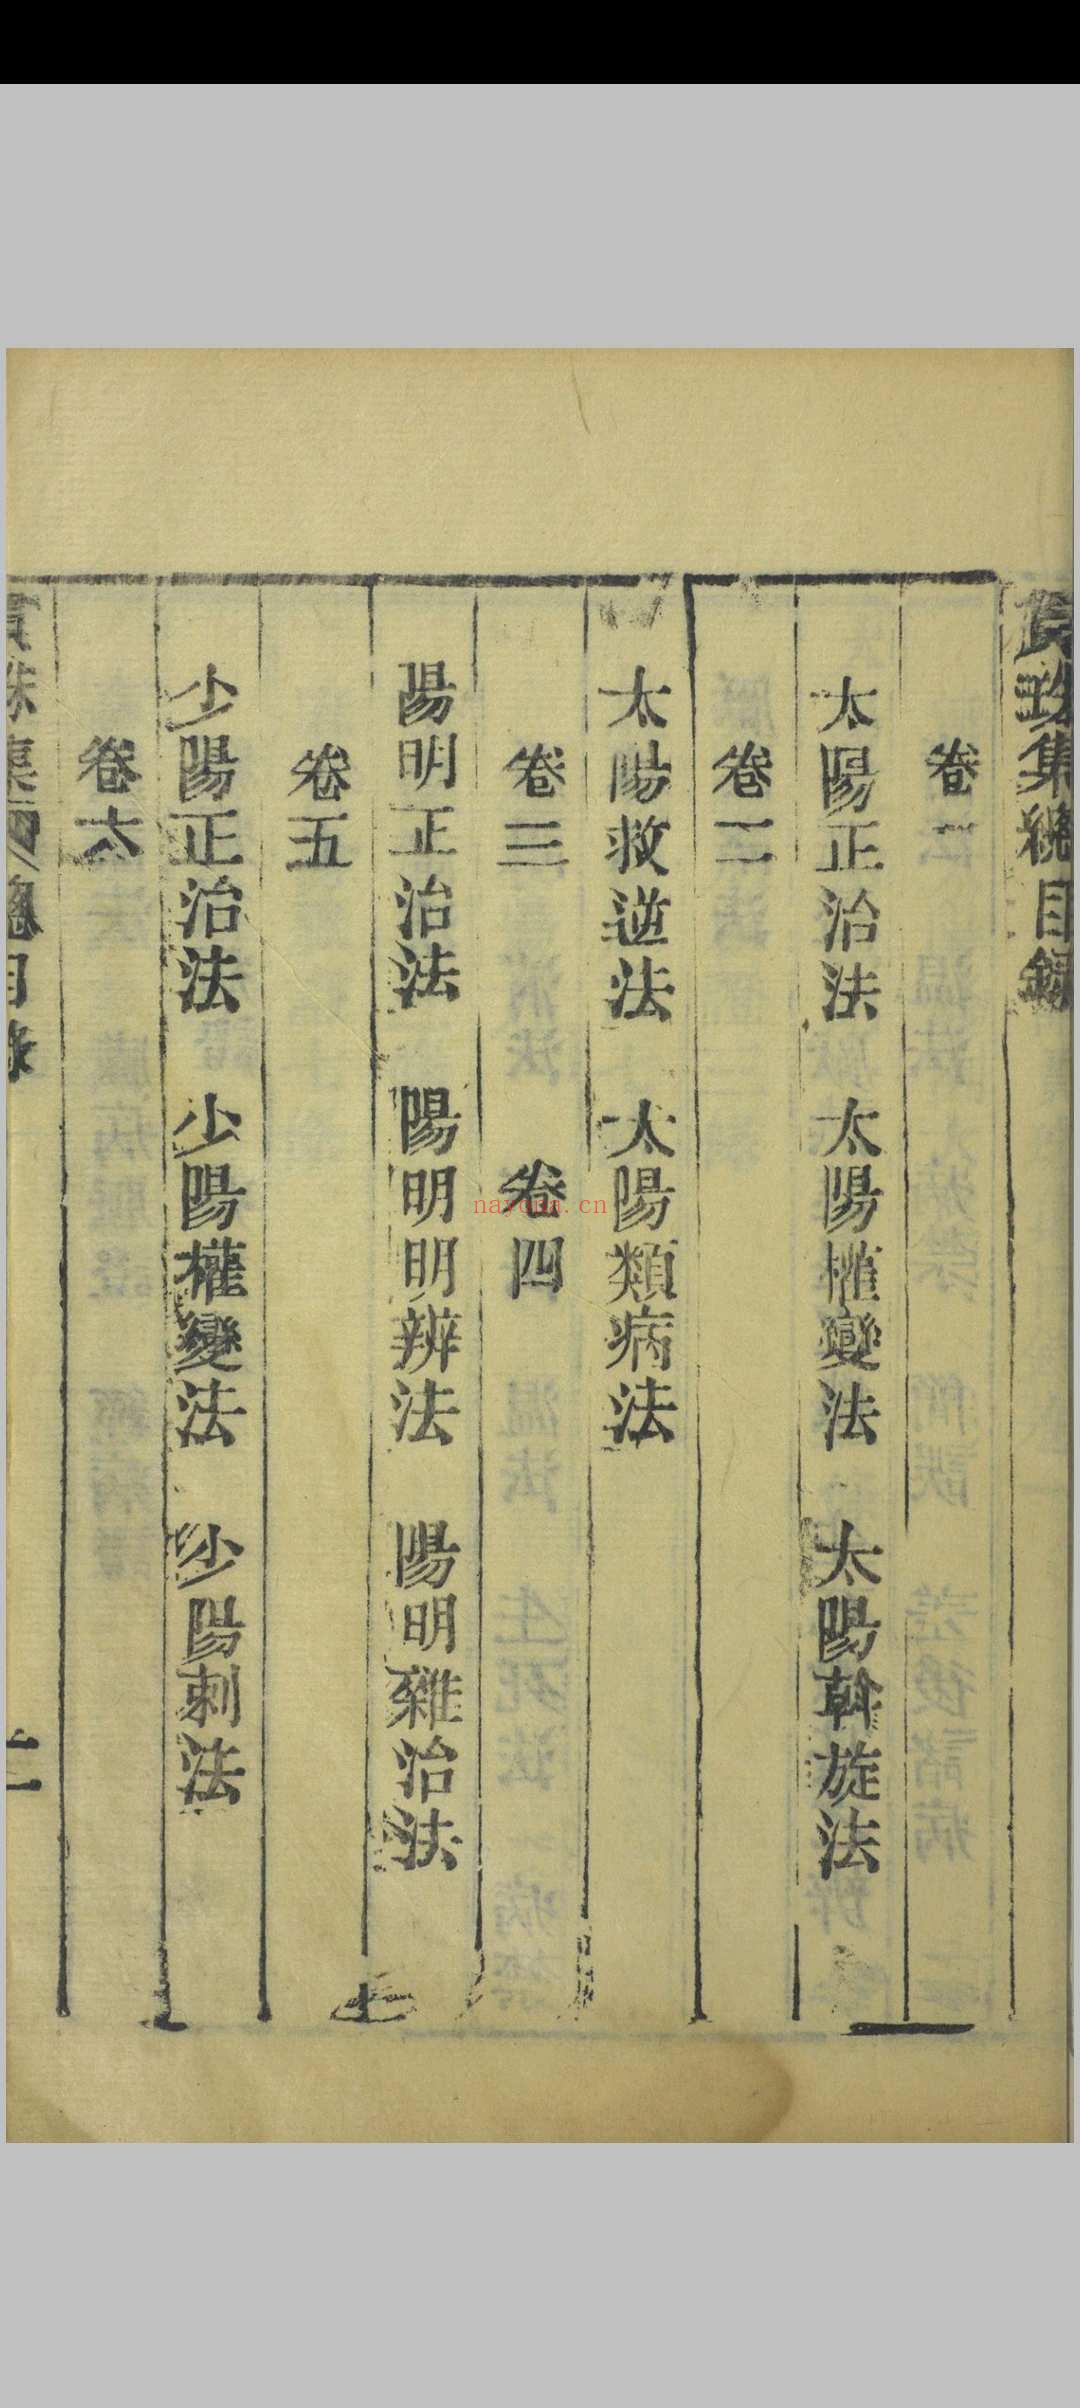 貫珠集總目錄
卷一
太陽正治法　太陽權變法　太陽斡旋法
卷二
太陽救逆法　太陽類病法
卷三　卷四
陽明正治法　陽明明辨法　陽明雜治法
卷五
少陽正治法　少陽權變法　少陽刺法
卷六
貫珠集　總目錄　二
nayona.cn